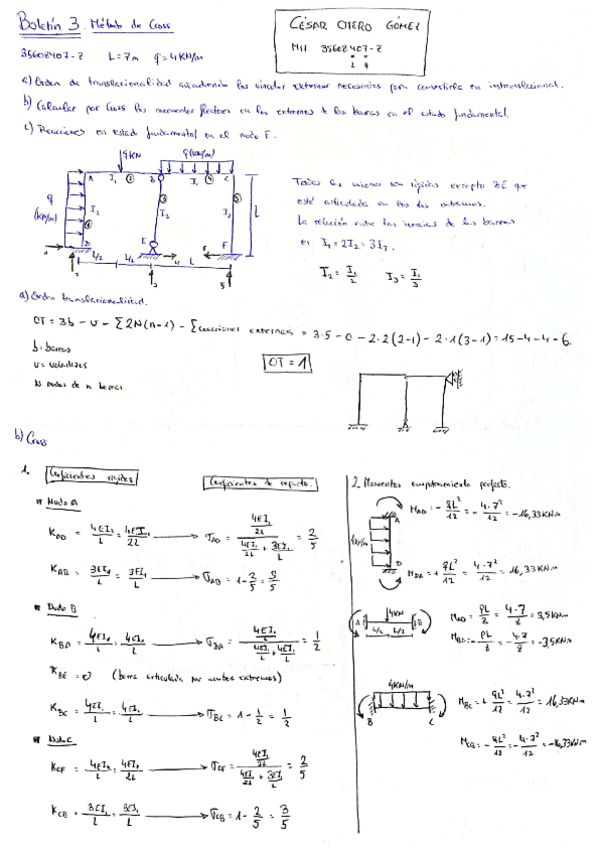 Boletín 3. Método de Cross
CÉSAR OTERO GÓMEZ
M11 35602407-Z
35602407-Z L=7m q=4KN/m
a) Orden de translacionalidad añadiendo los vínculos externos necesarios para convertirla en intranslacional.
b) Calcular por Cross los momentos flectores en los extremos de las barras en el estado fundamental.
c) Reacciones en estado fundamental en el nodo F.
9KN q(KN/m)
A I₁ B I₁ C
q (KN/m) I₂ I₃ I₂ L
D E F
L/2 L/2 L
Todos los nudos son rígidos excepto BE que
está articulada en sus dos extremos.
La relación entre las inercias de las barras
es I₁ = 2I₂ = 3I₃.
I₂ = I₁/2 I₃ = I₁/3
a) Orden translacionalidad.
OT = 3b - v - ∑2N(n-1) - ∑coacciones externas = 3·5 - 0 - 2·2(2-1) - 2·1(3-1) = 15-4-4-6
b: barras
v = voladizos
N nudos de n barras
OT = 1
b) Cross
1. Coeficientes rigidez Coeficientes de reparto.
Nudo A
K_AD = 4EI₂/L = 4EI₁/2L → σ_AD = (4EI₁/2L)/(4EI₁/2L + 3EI₁/L) = 2/5
K_AB = 3EI₁/L = 3EI₁/L → σ_AB = 1 - 2/5 = 3/5
Nudo B
K_BA = 4EI₁/L = 4EI₁/L → σ_BA = (4EI₁/L)/(4EI₁/L + 4EI₁/L) = 1/2
K_BE = 0 (barra articulada por ambos extremos)
K_BC = 4EI₁/L = 4EI₁/L → σ_BC = 1 - 1/2 = 1/2
Nudo C
K_CF = 4EI₂/L = 4EI₁/2L → σ_CF = (4EI₁/2L)/(4EI₁/2L + 3EI₁/L) = 2/5
K_CB = 3EI₁/L = 3EI₁/L → σ_CB = 1 - 2/5 = 3/5
2. Momentos empotramiento perfecto.
4KN/m A D
M_AD = - qL²/12 = - 4·7²/12 = -16,33 KN·m
M_DA = + qL²/12 = 4·7²/12 = 16,33 KN·m
A 4KN B
L/2 L/2
M_AB = PL/8 = 4·7/8 = 3,5 KN·m
M_BA = - PL/8 = - 4·7/8 = -3,5 KN·m
4KN/m
B C
M_BC = + qL²/12 = 4·7²/12 = 16,33 KN·m
M_CB = - qL²/12 = - 4·7²/12 = -16,33 KN·m